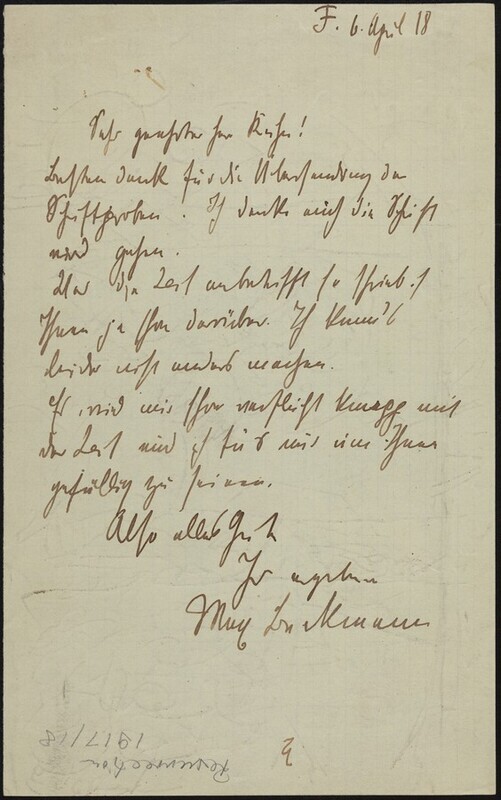 F. 6. April 18
Sehr geehrter Herr
Besten Dank für die Übersendung der
Schriftproben. Ich denke auch die Schrift
wird gehen.
Was die Zeit anbetrifft so schrieb ich
Ihnen ja schon darüber. Ich kann's
leider nicht anders machen.
Es wird mir schon verflucht knapp mit
der Zeit und ich tu's nur um Ihnen
gefällig zu seinen.
Also alles Gute
Ihr ergebener
Max Beckmann
Resurrection
1917/18